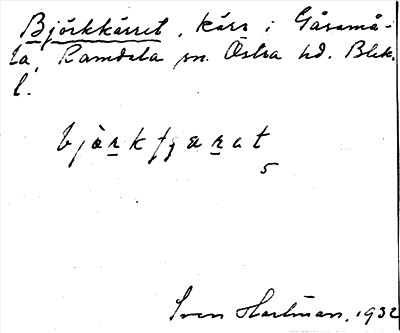 Björkkärret, kärr i Gåsamå-
la, Ramdala sn. Östra hd. Blek.
l.
bjö̀rkfjærat
5
Sven Hartman, 1932